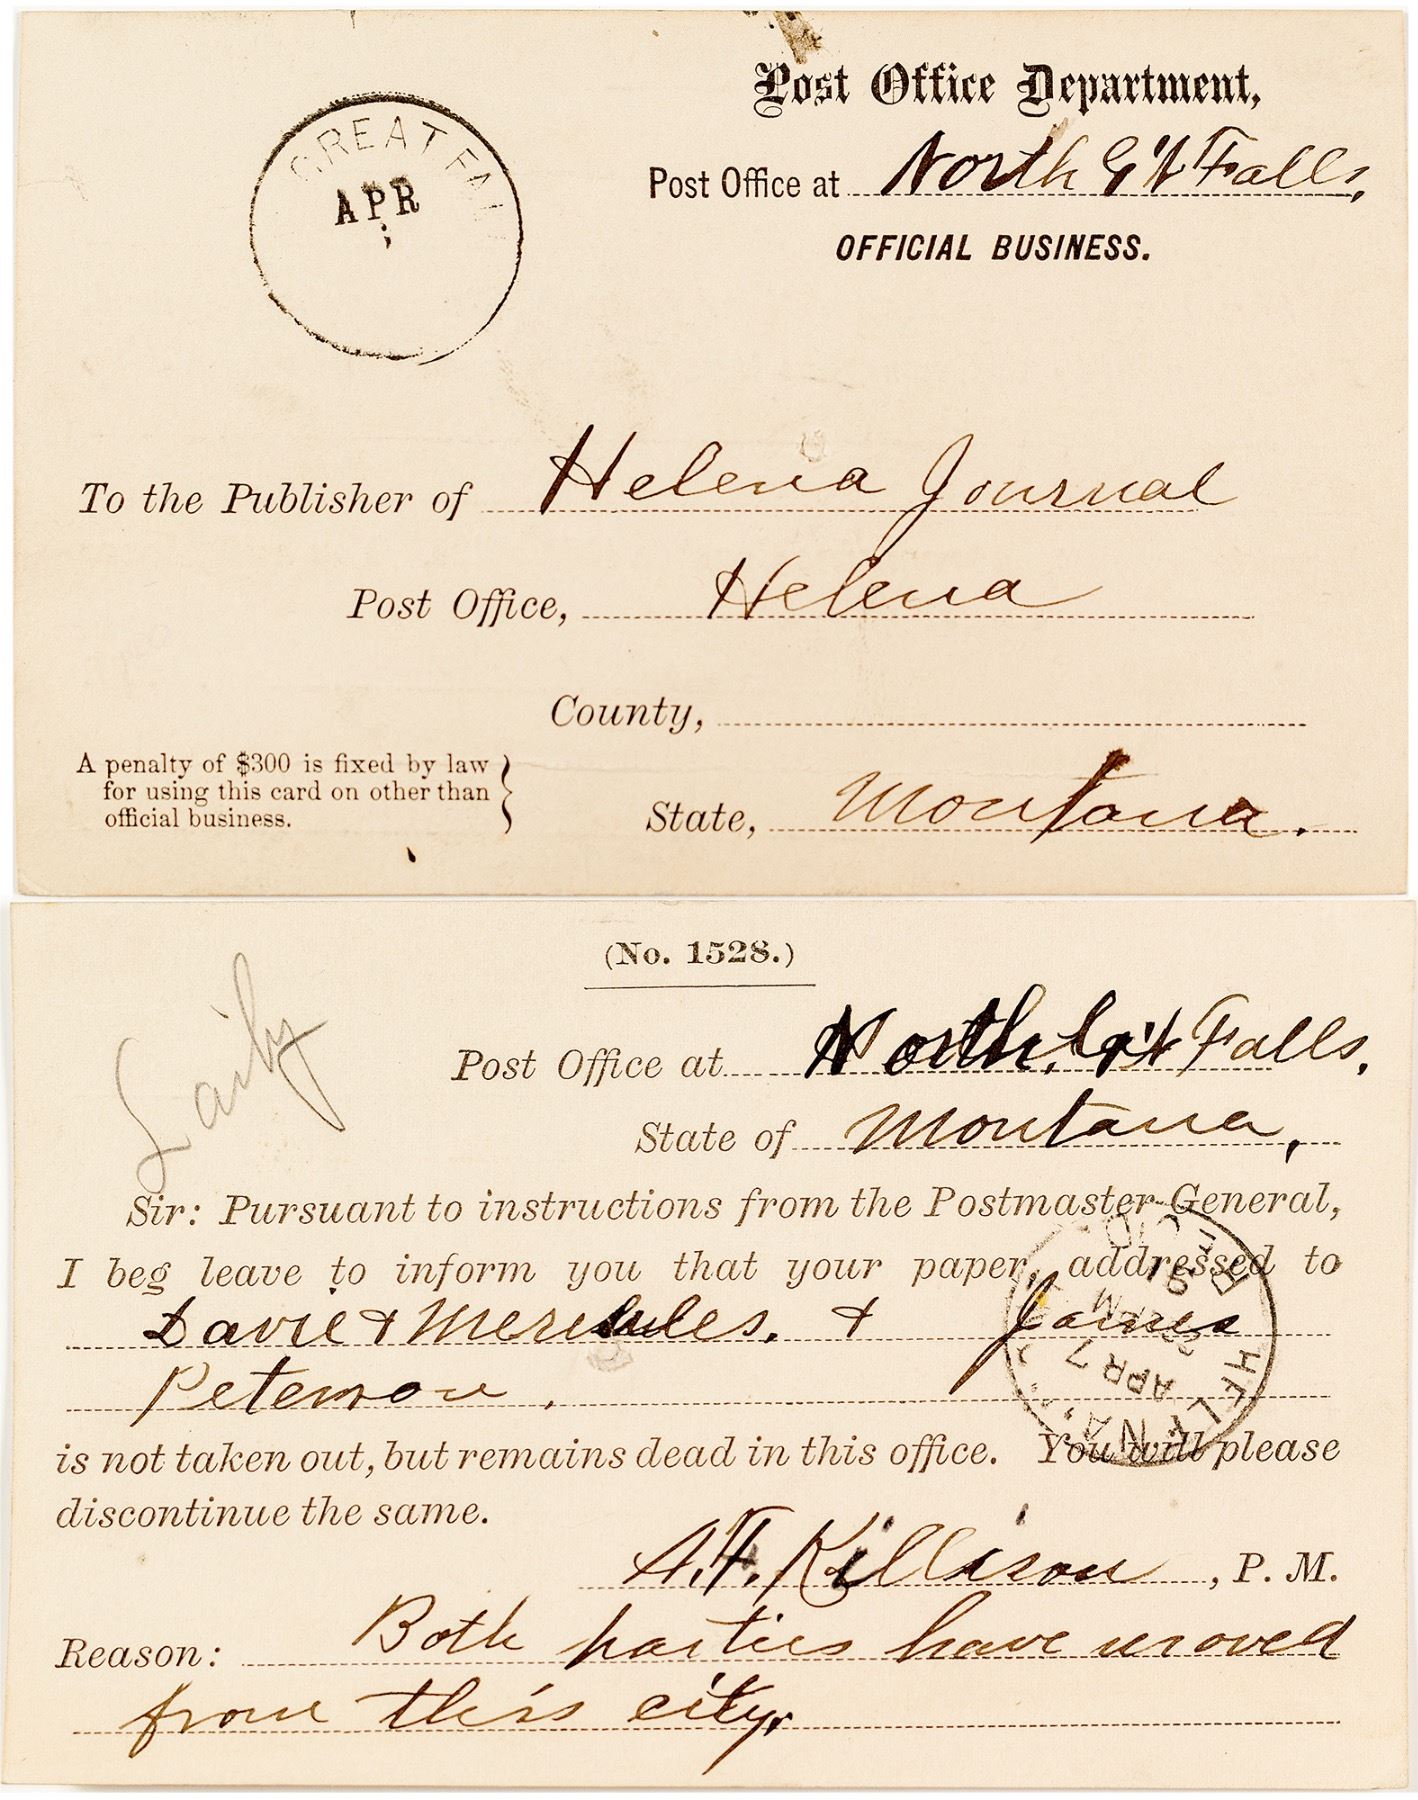 Post Office Department,
Post Office at North G't Falls,
OFFICIAL BUSINESS.
GREAT FAL
APR
To the Publisher of Helena Journal
Post Office, Helena
County,
A penalty of $300 is fixed by law
for using this card on other than
official business.
State, Montana.
(No. 1528.)
Post Office at North. G't Falls,
State of Montana,
Sir: Pursuant to instructions from the Postmaster-General,
I beg leave to inform you that your paper, addressed to
Davie & & James
Peterson,
is not taken out, but remains dead in this office. You will please
discontinue the same.
A.F. Killison, P. M.
Reason: Both parties have moved
from this city.
REC'D
APR 7
HELENA